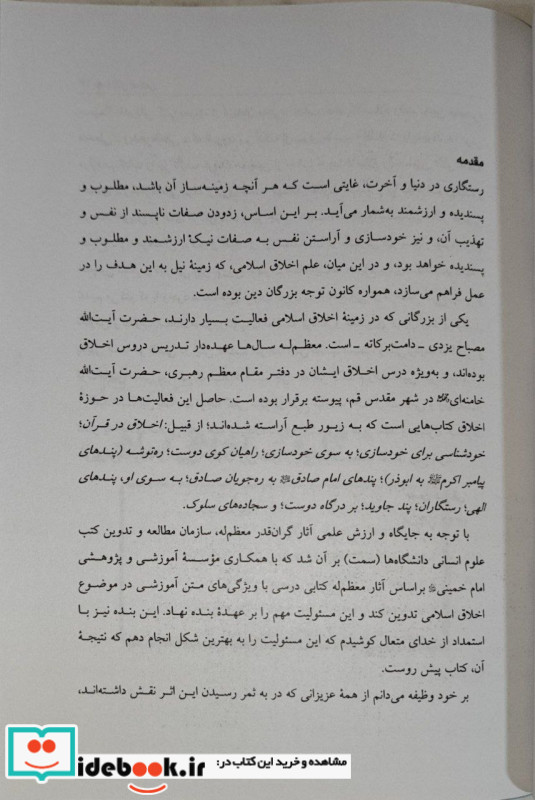 مقدمه
رستگاری در دنیا و آخرت، غایتی است که هر آنچه زمینه‌ساز آن باشد، مطلوب و
پسندیده و ارزشمند به‌شمار می‌آید. بر این اساس، زدودن صفات ناپسند از نفس و
تهذیب آن، و نیز خودسازی و آراستن نفس به صفات نیک، ارزشمند و مطلوب و
پسندیده خواهد بود، و در این میان، علم اخلاق اسلامی، که زمینهٔ نیل به این هدف را در
عمل فراهم می‌سازد، همواره کانون توجه بزرگان دین بوده است.
یکی از بزرگانی که در زمینهٔ اخلاق اسلامی فعالیت بسیار دارند، حضرت آیت‌الله
مصباح یزدی ـ دامت‌برکاته ـ است. معظم‌له سال‌ها عهده‌دار تدریس دروس اخلاق
بوده‌اند، و به‌ویژه درس اخلاق ایشان در دفتر مقام معظم رهبری، حضرت آیت‌الله
خامنه‌ای در شهر مقدس قم، پیوسته برقرار بوده است. حاصل این فعالیت‌ها در حوزهٔ
اخلاق کتاب‌هایی است که به زیور طبع آراسته شده‌اند؛ از قبیل: اخلاق در قرآن؛
خودشناسی برای خودسازی؛ به سوی خودسازی؛ راهیان کوی دوست؛ ره‌توشه (پندهای
پیامبر اکرم ﷺ به ابوذر)؛ پندهای امام صادق به ره‌جویان صادق؛ به سوی او، پندهای
الهی؛ رستگاران؛ پند جاوید؛ بر درگاه دوست؛ و سجاده‌های سلوک.
با توجه به جایگاه و ارزش علمی آثار گران‌قدر معظم‌له، سازمان مطالعه و تدوین کتب
علوم انسانی دانشگاه‌ها (سمت) بر آن شد که با همکاری مؤسسهٔ آموزشی و پژوهشی
امام خمینی براساس آثار معظم‌له کتابی درسی با ویژگی‌های متن آموزشی در موضوع
اخلاق اسلامی تدوین کند و این مسئولیت مهم را بر عهدهٔ بنده نهاد. این بنده نیز با
استمداد از خدای متعال کوشیدم که این مسئولیت را به بهترین شکل انجام دهم که نتیجهٔ
آن، کتاب پیش روست.
بر خود وظیفه می‌دانم از همهٔ عزیزانی که در به ثمر رسیدن این اثر نقش داشته‌اند،
idebook.ir
مشاهده و خرید این کتاب در: